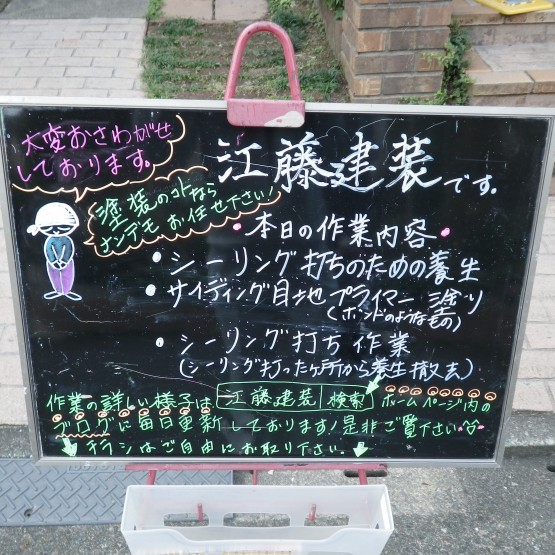 大変おさわがせ
しております。
江藤建装です。
塗装のコトなら
ナンデモお任せ下さい!
・本日の作業内容・
・シーリング打ちのための養生
・サイディング目地プライマー塗り
(ボンドのようなもの)
・シーリング打ち作業
(シーリング打ったヶ所から養生撤去)
作業の詳しい様子は 江藤建装 検索 ホームページ内の
ブログに毎日更新しております!是非ご覧下さい
↓チラシはご自由にお取り下さい。↓